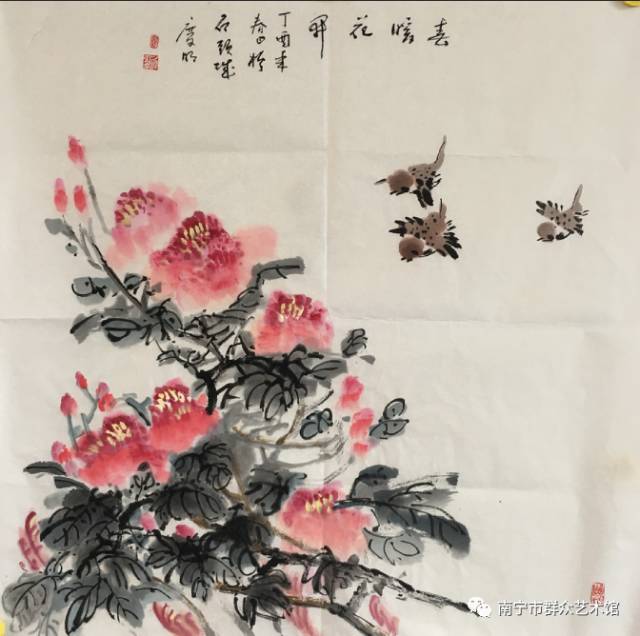 春暖花開
丁酉年
春日於
石頭城
南宁市群众艺术馆